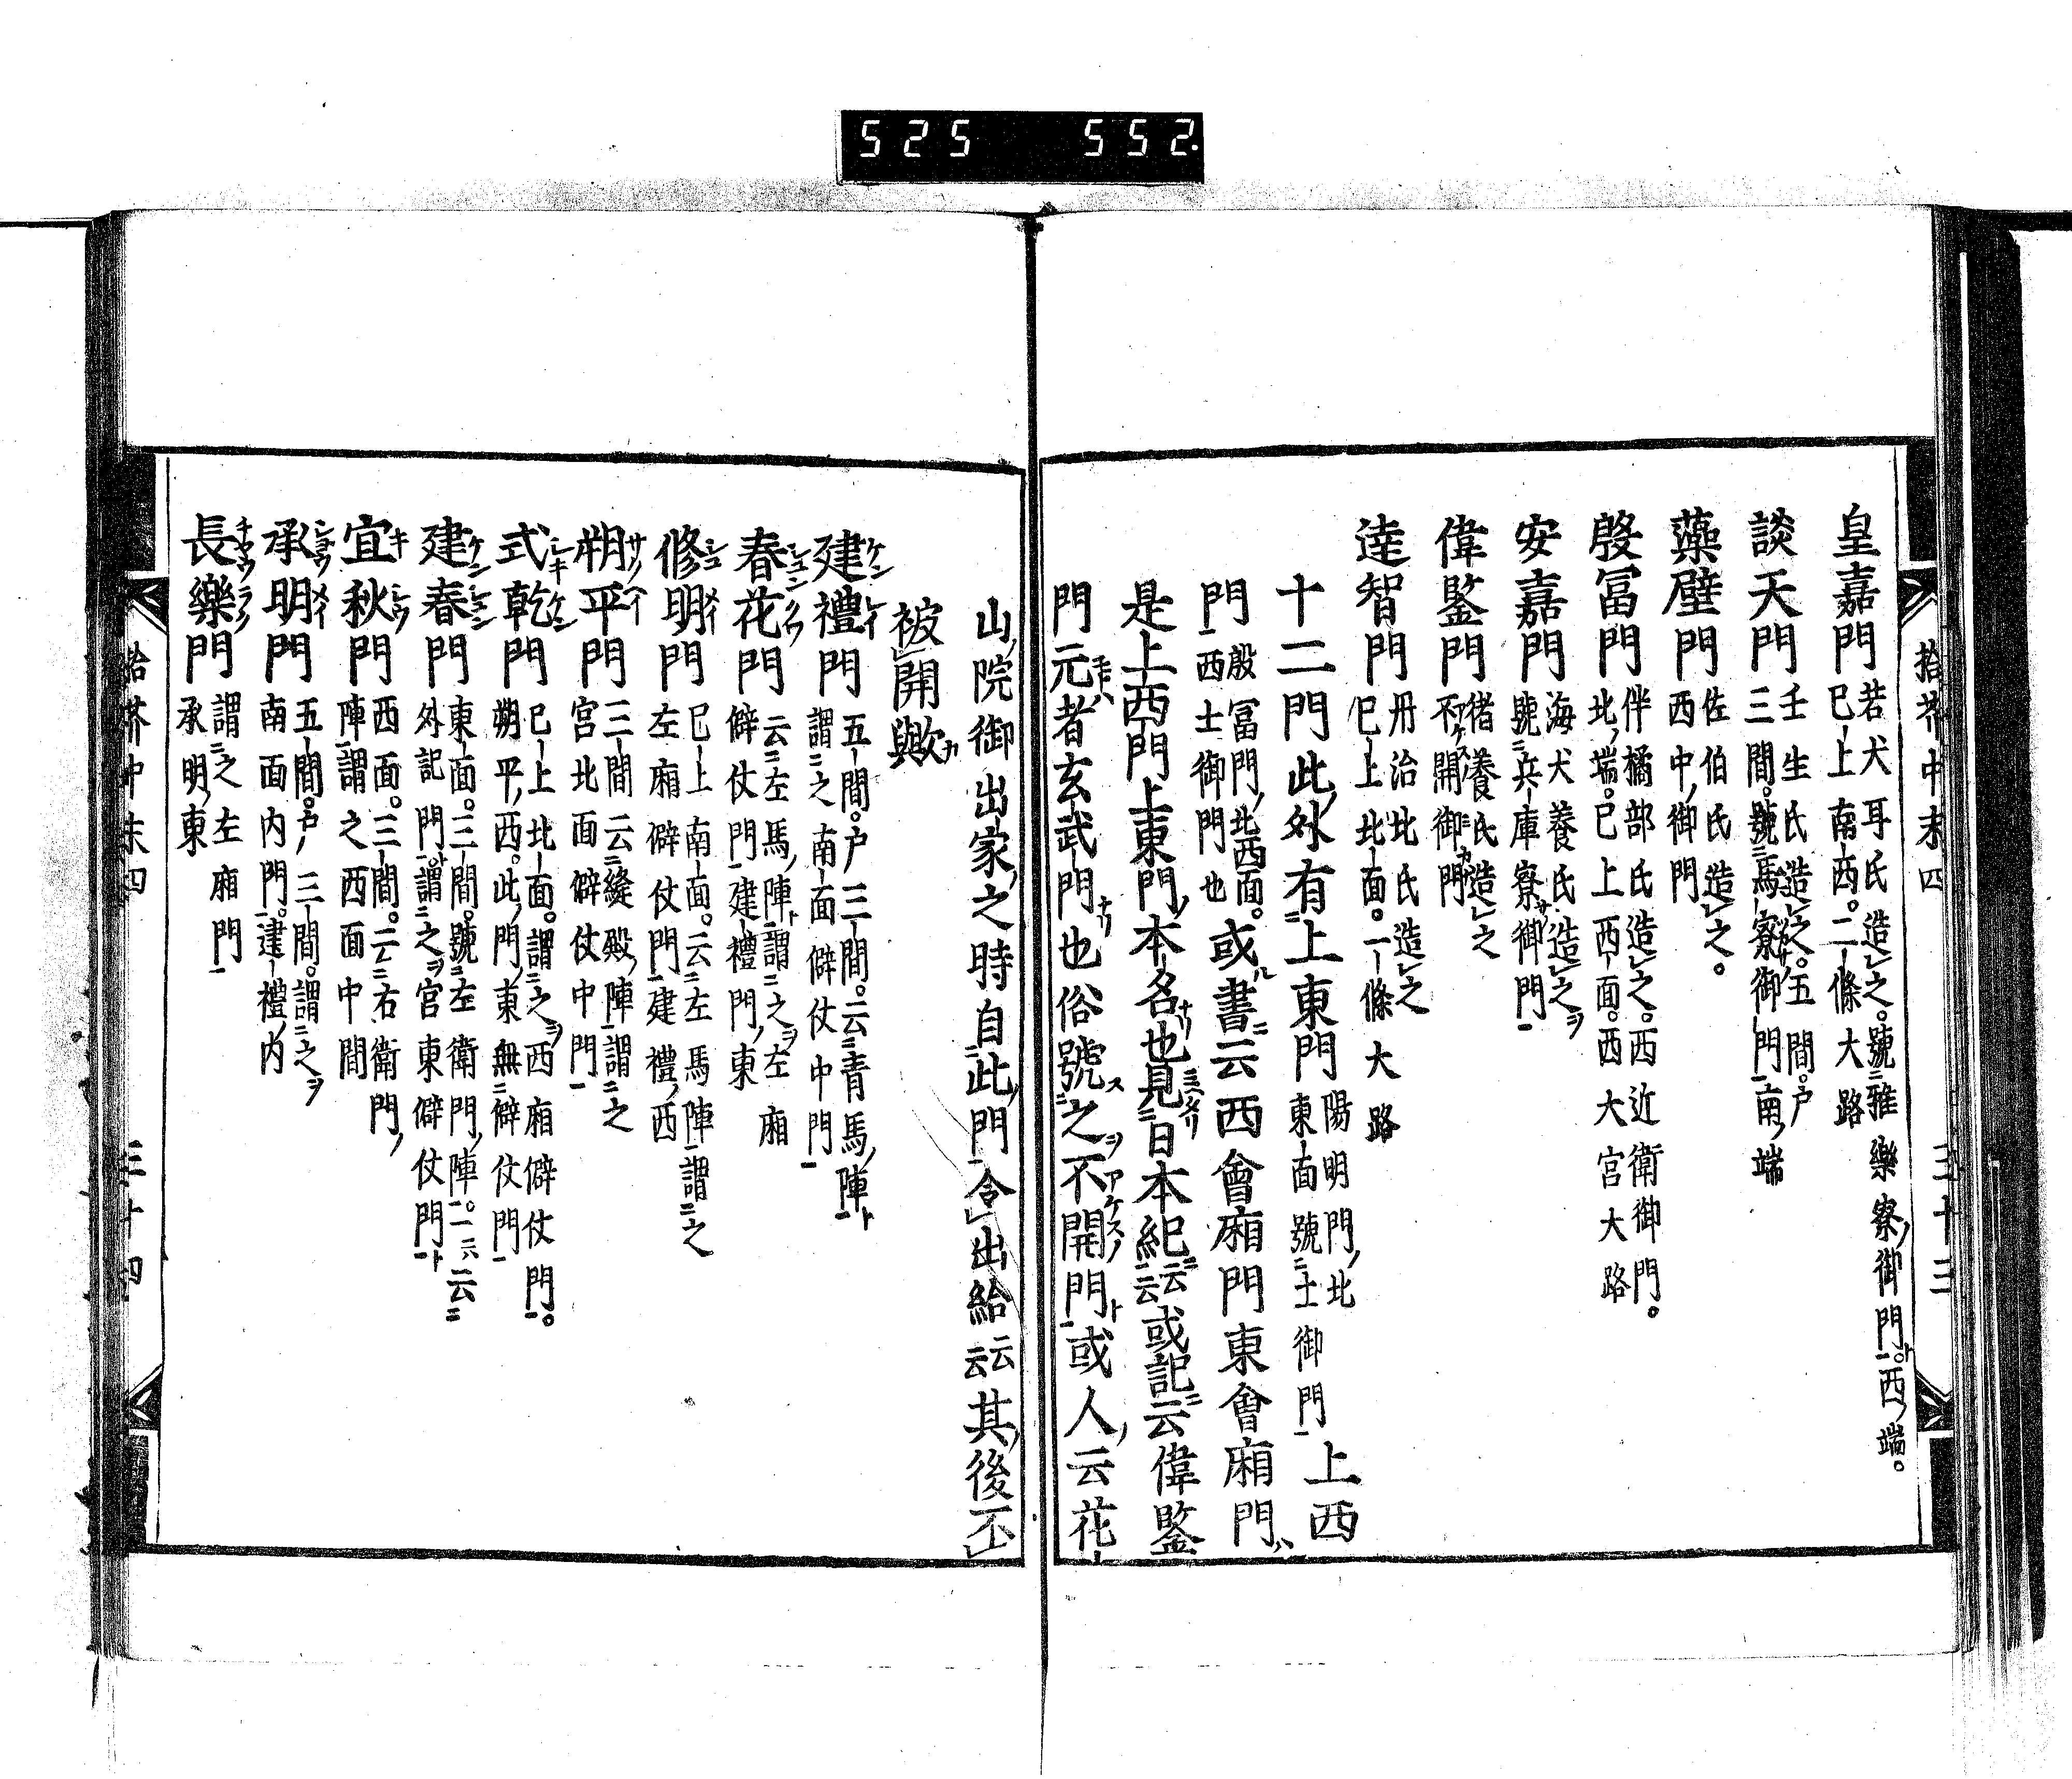 525 552.
拾芥中末四 三十三
皇嘉門 若犬耳氏造之。號雅樂寮御門。西端。
巳上南西。二條大路
談天門 壬生氏造之。五間。戸
三間。號馬寮御門。南端
藻壁門 佐伯氏造之。
西中御門
殷冨門 伴橘部氏造之。西近衛御門。
北端。巳上西面。西大宮大路
安嘉門 海犬養氏造之
號兵庫寮御門
偉鑒門 猪養氏造之
不開御門
達智門 丹治比氏造之
巳上北面。一條大路
十二門此外有上東門 陽明門北
東面號土御門 上西
門 殷冨門北西面。
西土御門也 或書云西會廂門東會廂門
是上西門上東門本名也見日本紀云云或記云偉鑒
門元者玄武門也俗號之不開門或人云花
山院御出家之時自此門令出給云云其後不
被開歟
建禮門 五間。戸三間。云青馬陣
謂之南面僻仗中門
春花門 云左馬陣謂之左廂
僻仗門建禮門東
修明門 巳上南面。云左馬陣謂之
左廂僻仗門建禮西
朔平門 三間云縫殿陣謂之
宮北面僻仗中門
式乾門 巳上北面。謂之西廂僻仗門。
朔平西。此門東無僻仗門
建春門 東面。三間。號左衛門陣。一云
外記門謂之宮東僻仗門
宜秋門 西面。三間。云右衛門
陣謂之西面中間
承明門 五間。戸三間。謂之
南面内門。建禮内
長樂門 謂之左廂門
承明東
拾芥中末四 三十四